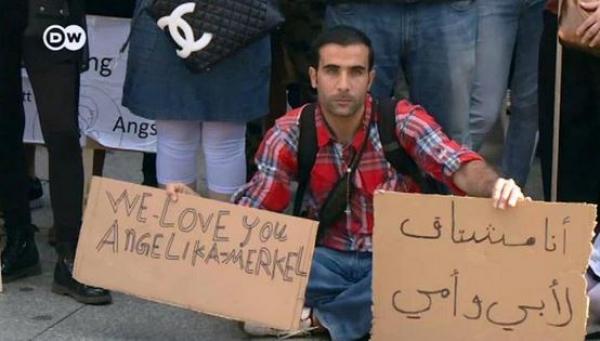 DW
ng
Angs
WE-LOVE YOU
ANGELIKA-MERKEL
أنا مشتاق
لأبي وأمي